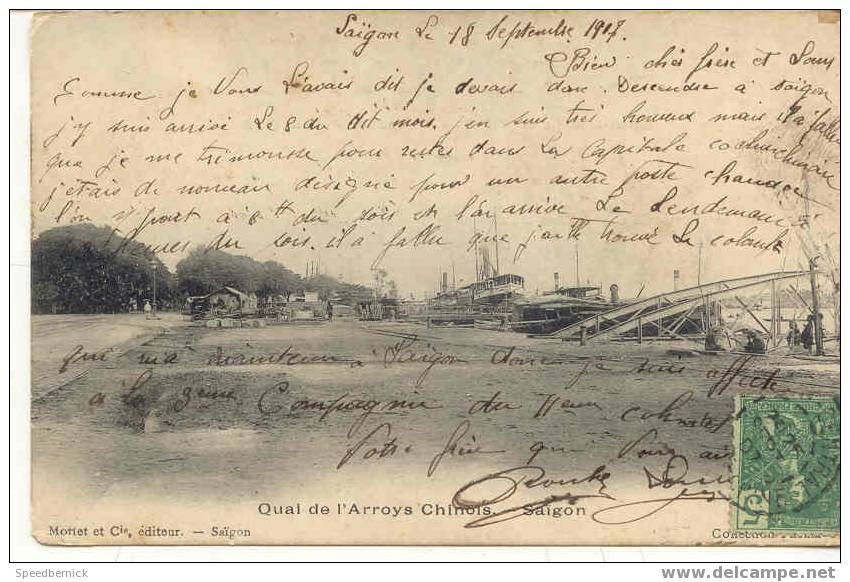 Saïgon Le 18 Septembre 1907.
Bien cher frère et Sœur
Comme je Vous L'avais dit je devais donc Descendre à Saïgon
j'y suis arrivé Le 8 du dit mois. j'en suis très heureux mais il a fallu
que je me trémousse pour rester dans La Capitale cochinchinoise
j'etais de nouveau désigné pour un autre poste
l'on part à 8 H du soir et l'on arrive Le Lendemain
heures du soir. il a fallu que j'aille trouvé Le colonel
qui m'a maintenu à Saïgon donc je suis affecté
à la 3eme Compagnie du 11eme colonial
Votre frère qui Vous
Quai de l'Arroys Chinois. — Saïgon
Mottet et Cie, éditeur. — Saïgon
Collection
5
Speedbernick
www.delcampe.net